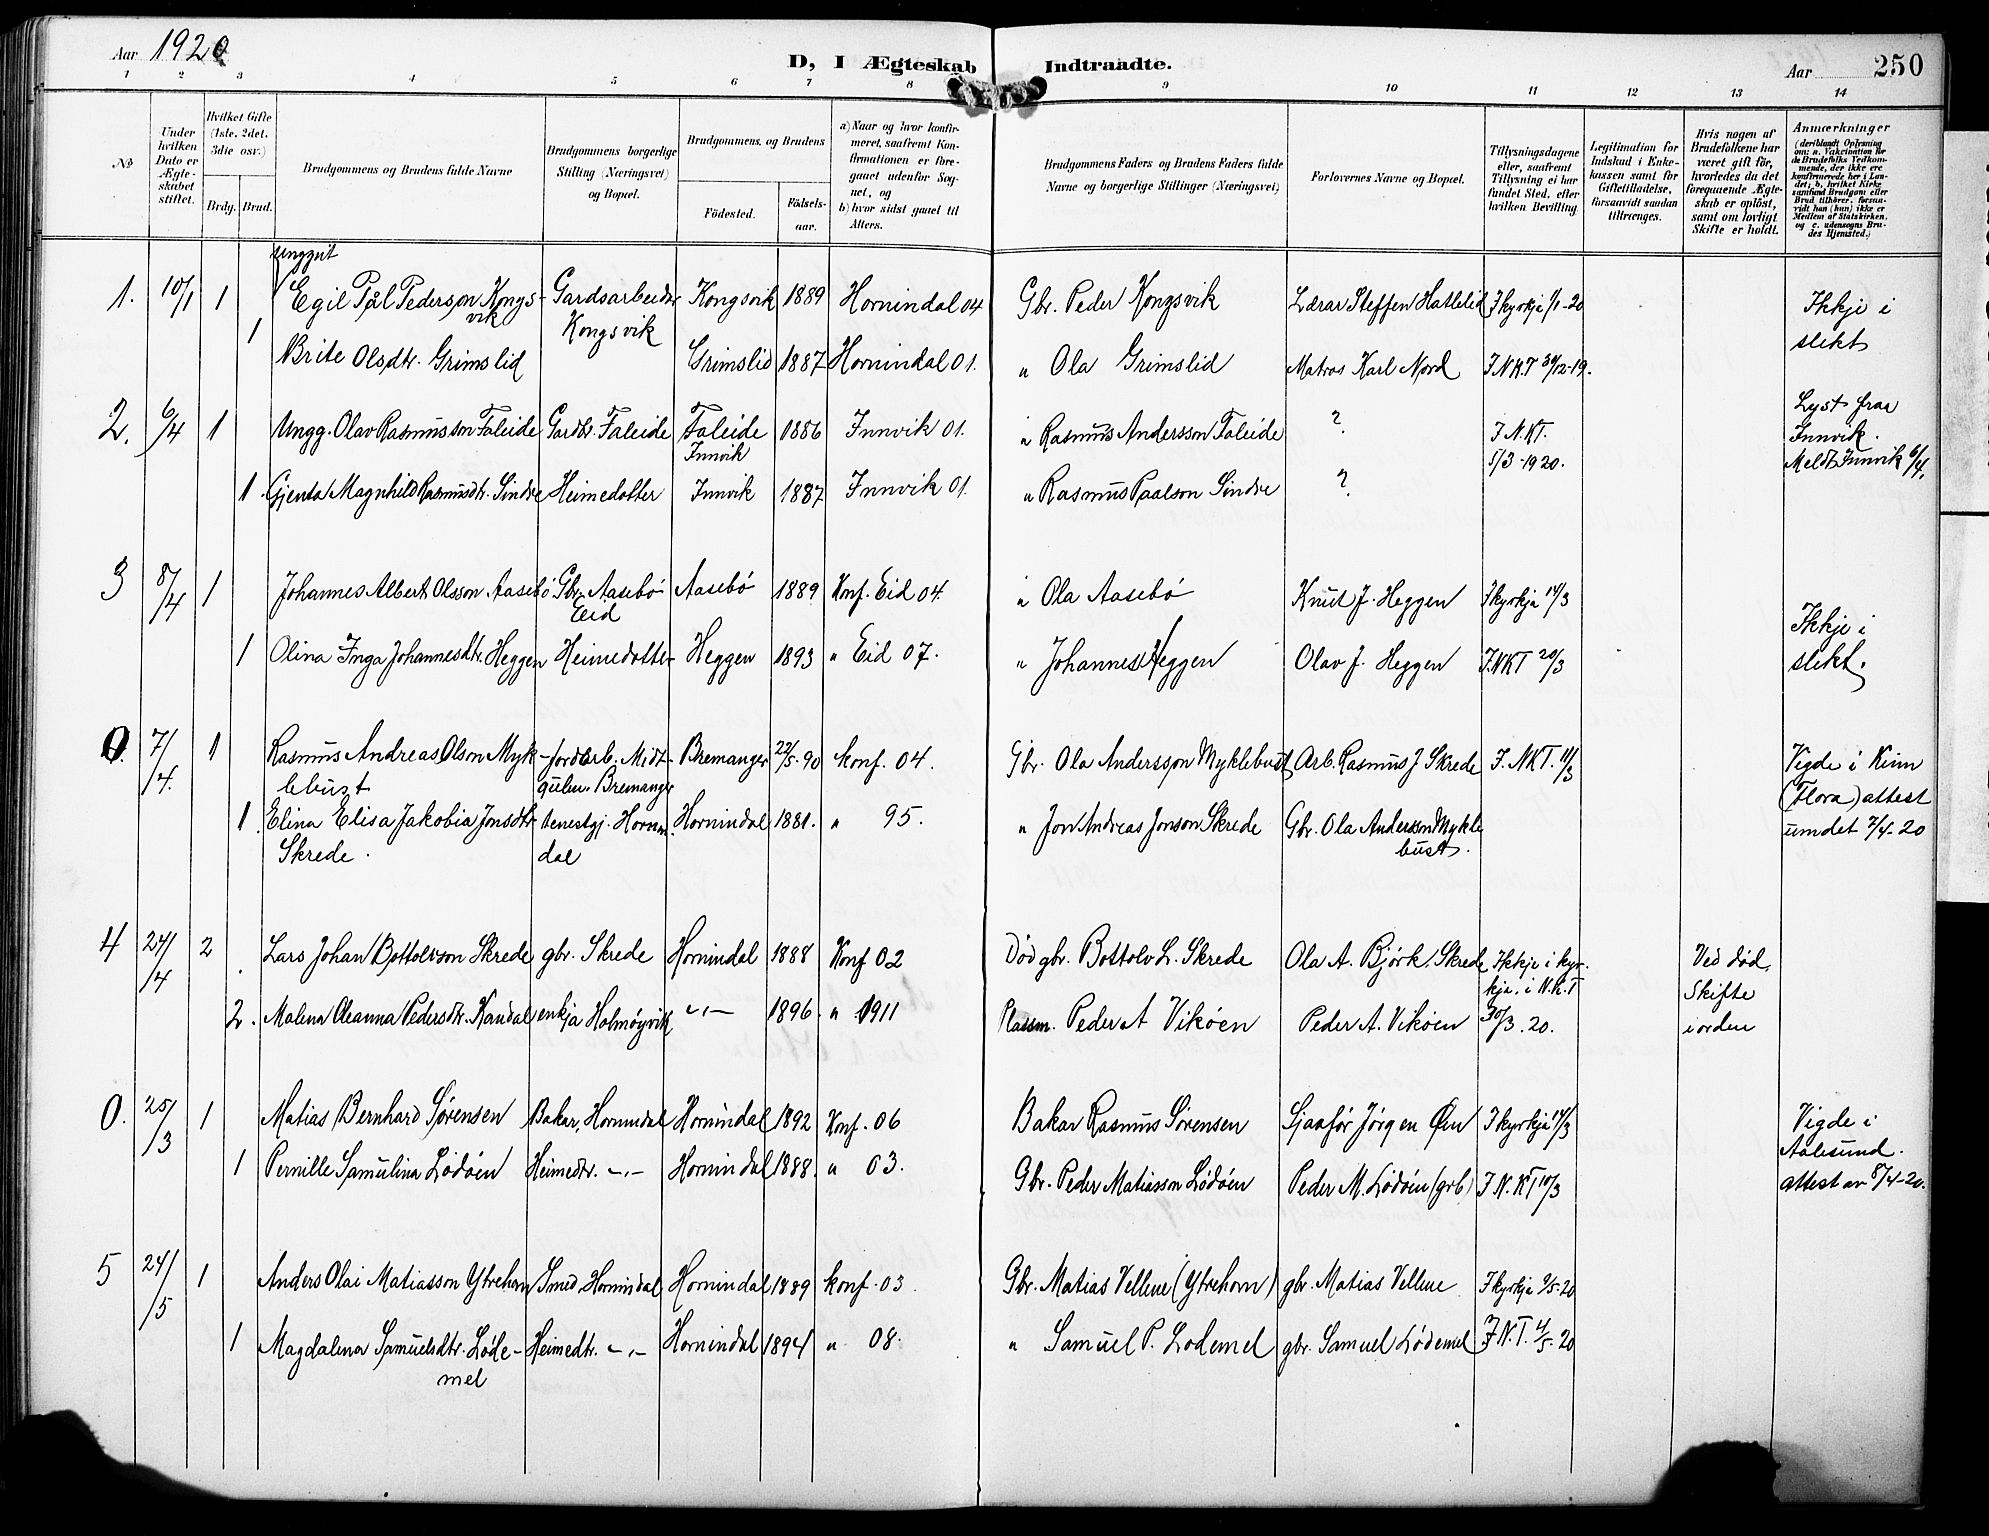 Aar 1920
D, I Ægteskab Indtraadte.
Aar 250
1 2 3 4 5 6 7 8 9 10 11 12 13 14
No
Under hvilken Dato er Ægteskabet stiftet.
Hvilket Gifte (1ste, 2det, 3die osv.)
Brdg. Brud.
Brudgommens og Brudens fulde Navne
Brudgommens borgerlige Stilling (Næringsvei) og Bopæl.
Brudgommens og Brudens
Födested.
Födselsaar.
a) Naar og hvor konfirmeret, saafremt Konfirmationen er foregaaet udenfor Sognet, og
b) hvor sidst gaaet til Alters.
Brudgommens Faders og Brudens Faders fulde Navne og borgerlige Stillinger (Næringsvei)
Forlovernes Navne og Bopæl.
Tillysningsdagene eller, saafremt Tillysning ei har fundet Sted, efter hvilken Bevilling.
Legitimation for Indskud i Enkekassen samt for Giftetilladelse, forsaavidt saadan tiltrænges.
Hvis nogen af Brudefolkene har været gift för, hvorledes da det foregaaende Ægteskab er oplöst, samt om lovligt Skifte er holdt.
Anmærkninger (deriblandt Oplysning om: a. Vakcination for de Brudefolks Vedkommende, der ikke ere konfirmerede her i Landet; b. hvilket Kirkesamfund Brudgom eller Brud tilhörer, forsaavidt han (hun) ikke er Medlem af Statskirken, og c. udensogns Brudes Hjemsted.)
Unggut
1. 10/1 1 Egil Pål Pederson Kongsvik Gardsarbeider Kongsvik Kongsvik 1889 Hornindal 04 Gbr. Peder Kongsvik Lærar Steffen Hatlelid I kyrkja 1/1-20 Ikkje i slekt
1 Brite Olsdtr. Grimslid Grimslid 1887 Hornindal 01. " Ola Grimslid Matros Karl Nord I NKT 30/12-19.
2. 6/4 1 Ungg. Olav Rasmusson Faleide Gardbr. Faleide Faleide Innvik 1886 Innvik 01. " Rasmus Andersson Faleide ? I N.KT. 5/3-1920. Lyst fraa Innvik. Meldt Innvik 6/4.
1. Gjenta Magnhild Rasmusdtr. Sindre Heimedotter Innvik 1887 Innvik 01. " Rasmus Paalson Sindre ?
3 8/4 1 Johannes Albert Olsson Aasebö Gbr. Aasebö Eid Aasebö 1889 Konf. Eid 04. " Ola Aasebö Knut J. Heggen I kyrkja 14/3 Ikkje i slekt.
1 Olina Inga Johannesdtr. Heggen Heimedotter Heggen 1893 " Eid 07. " Johannes Heggen Olav J. Heggen I.NKT 20/3
0. 7/4. 1 Rasmus Andreas Olson Myklebust jordarb. Midtgulen. Bremanger Bremanger 22/5.90 konf. 04. Gbr. Ola Andersson Myklebust Arb. Rasmus J Skrede I. NKT. 11/3 Vigde i Kinn (Flora) attest umdet 7/4-20
1. Elina Elisa Jakobia Jonsdtr Skrede. tenestgj. Hornindal Hornindal 1881. " 95. " Jon Andreas Jonson Skrede Gbr. Ola Anderson Myklebust.
4 24/4 2 Lars Johan Bottolvson Skrede gbr. Skrede Hornindal 1888 Konf 02 Död gbr. Bottolv L. Skrede Ola A. Bjørk. Skrede Ikkje i kyrkja. i N.K.T 30/3.20. Ved död. Skifte i orden
2. Malena Oleanna Pedersdtr. Kandal enkja Holmöyvik -"- 1896. " 1911 Plassm. Peder A Viköen Peder A. Viköen
0. 25/3 1 Matias Bernhard Sørensen Bakar, Hornindal Hornindal 1892 Konf. 06 Bakar Rasmus Sørensen Sjaafør Jørgen Øen I kyrkja 14/3 Vigde i Aalesund. attest av 8/4-20.
1 Pernille Samulina Lødøen Heimedtr. -"- Hornindal 1888. " 03. Gbr. Peder Matiasson Lødøen Peder M. Lødøen (grb) I N.KT 10/3
5 24/5 1 Anders Olai Matiasson Ytrehorn Smed Hornindal Hornindal 1889 konf. 03. Gbr. Matias Vellene (Ytrehorn) gbr. Matias Vellene I kyrkja 9/5-20
1 Magdalena Samuelsdtr. Lødemel Heimedtr. -"- Hornindal 1894 " 08. " Samuel P. Lodemel gbr. Samuel Lødemel I N.T. 4/5-20